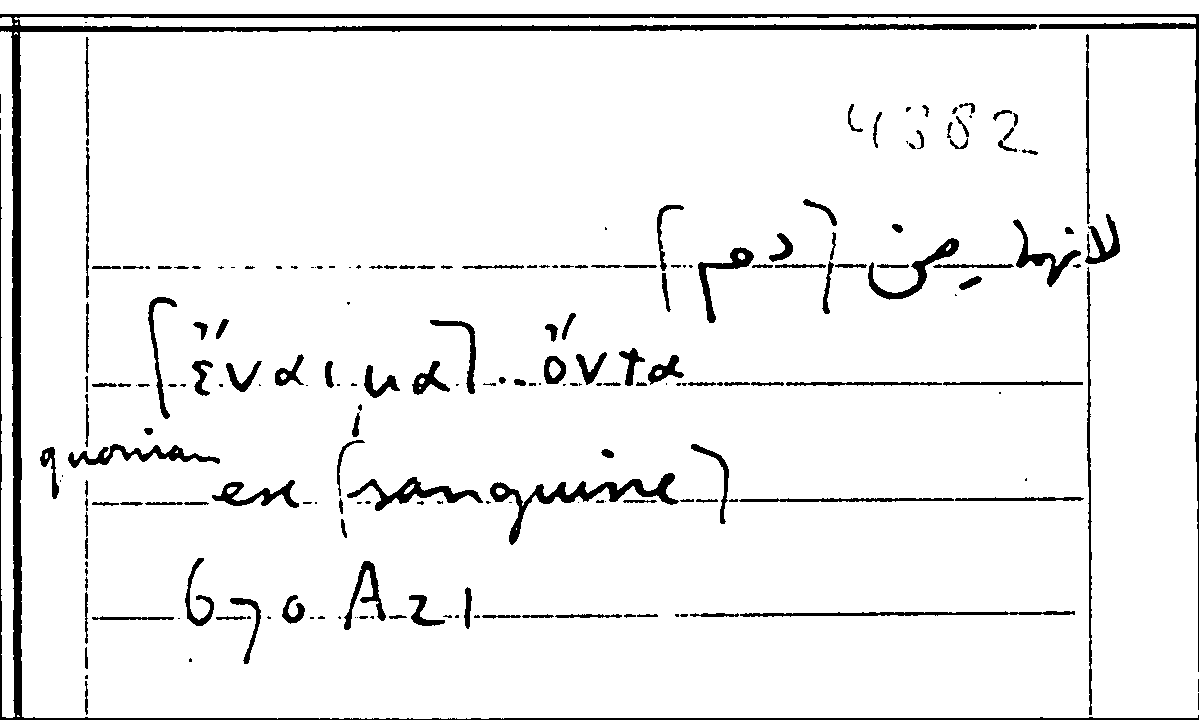 4382
لانها من [دم]
[ἔναιμα]... ὄντα
quoniam
ex [sanguine]
670 A 21